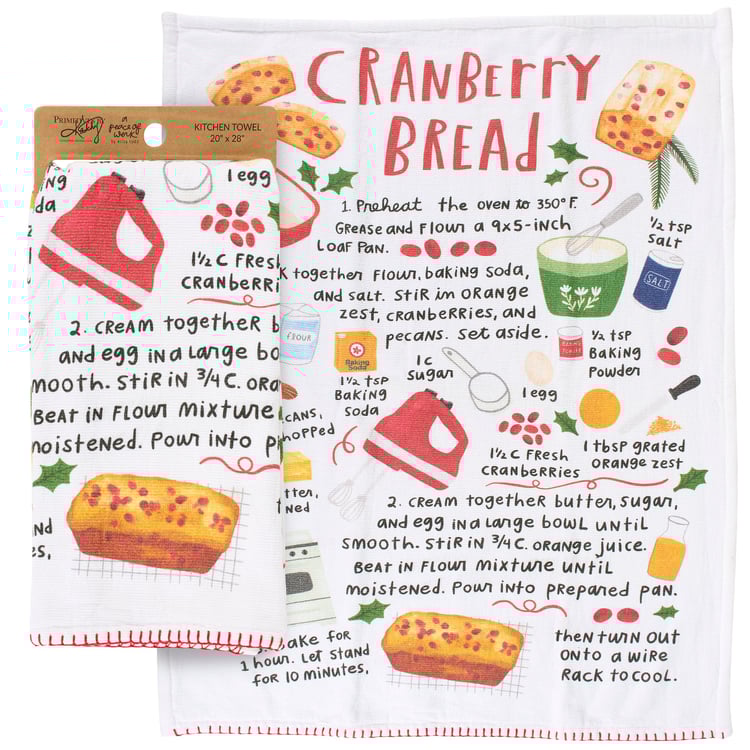 CRANBERRY
BREAD
1. Preheat the oven to 350° F.
GREASE AND FLOUR A 9x5-inch
LOAF PAN.
K together flour, baking soda,
and salt. Stir in orange
zest, cranberries, and
pecans. Set aside.
½ tsp
SALT
SALT
FLOUR
Baking
Soda
1½ tsp
Baking
Soda
1 C
SUGAR
1 egg
½ tsp
Baking
Powder
CANS,
hopped
1½ C FRESH
CRANBERRIES
1 tbsp grated
orange zest
tter,
ned
2. CREAM together butter, sugar,
and egg in a large bowl until
smooth. Stir in ¾ C. orange juice.
Beat in flour mixture until
moistened. Pour into prepared pan.
ake for
1 hour. Let stand
for 10 minutes,
then turn out
onto a wire
rack to cool.
Primitives by
Kathy
a
peace of
work
KITCHEN TOWEL
20" x 28"
NG
da
1 egg
1½ C FRESH
CRANBERRI
2. CREAM together b
and egg in a large bo
mooth. Stir in ¾ C. ora
Beat in flour mixture
moistened. Pour into p
nd
es,